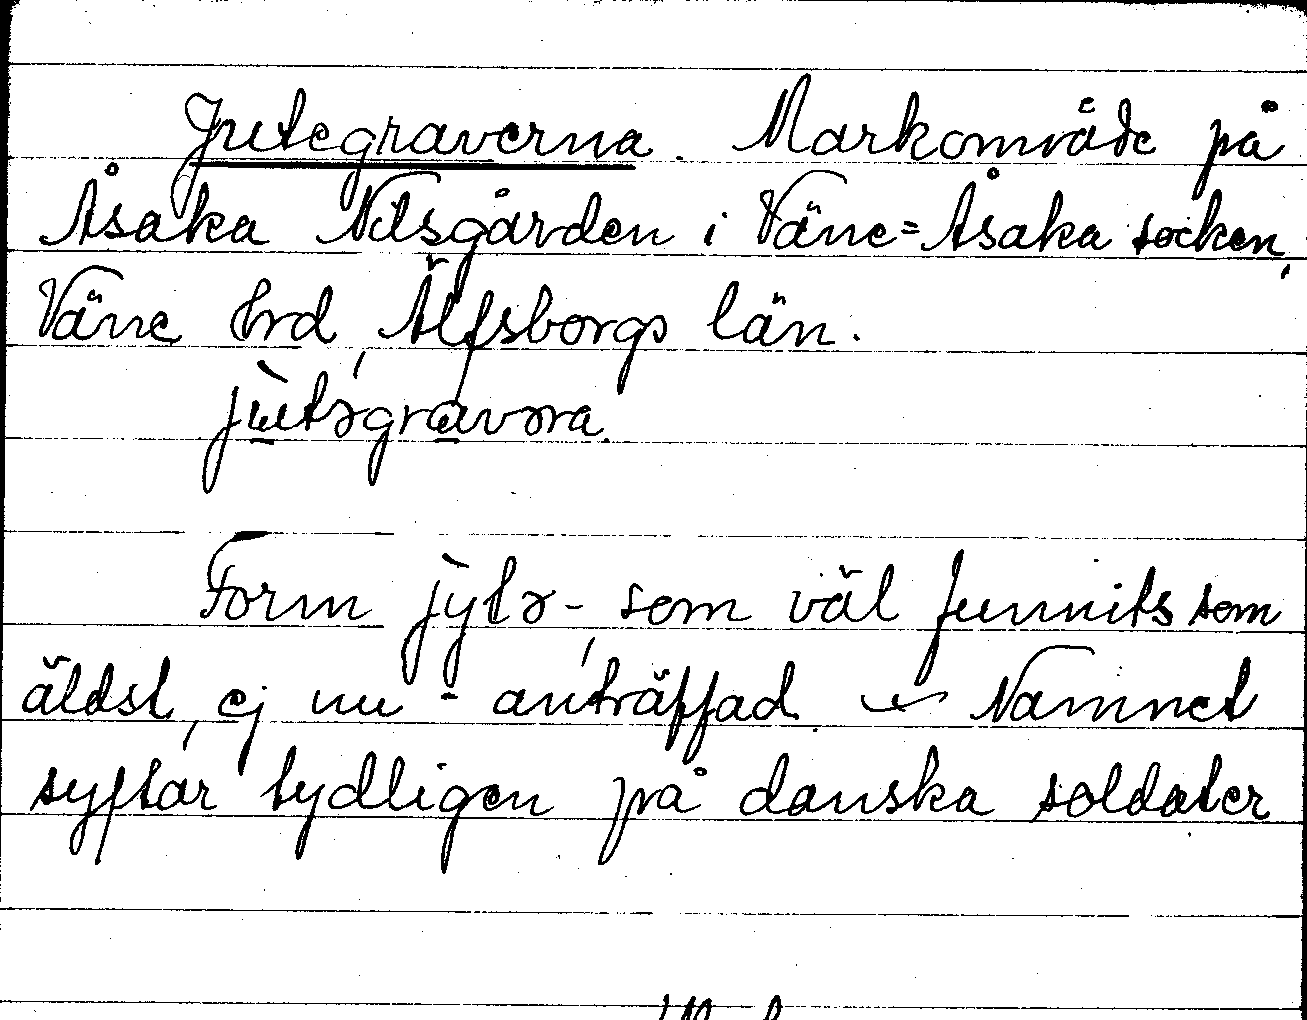 Jutegraverna. Markområde på
Åsaka Nilsgården i Väne-Åsaka socken,
Väne hrd, Älfsborgs län.
jùtəgravəra.
Form jỳtə-, som väl funnits som
äldst, ej nu - anträffad. Namnet
syftar tydligen på danska soldater